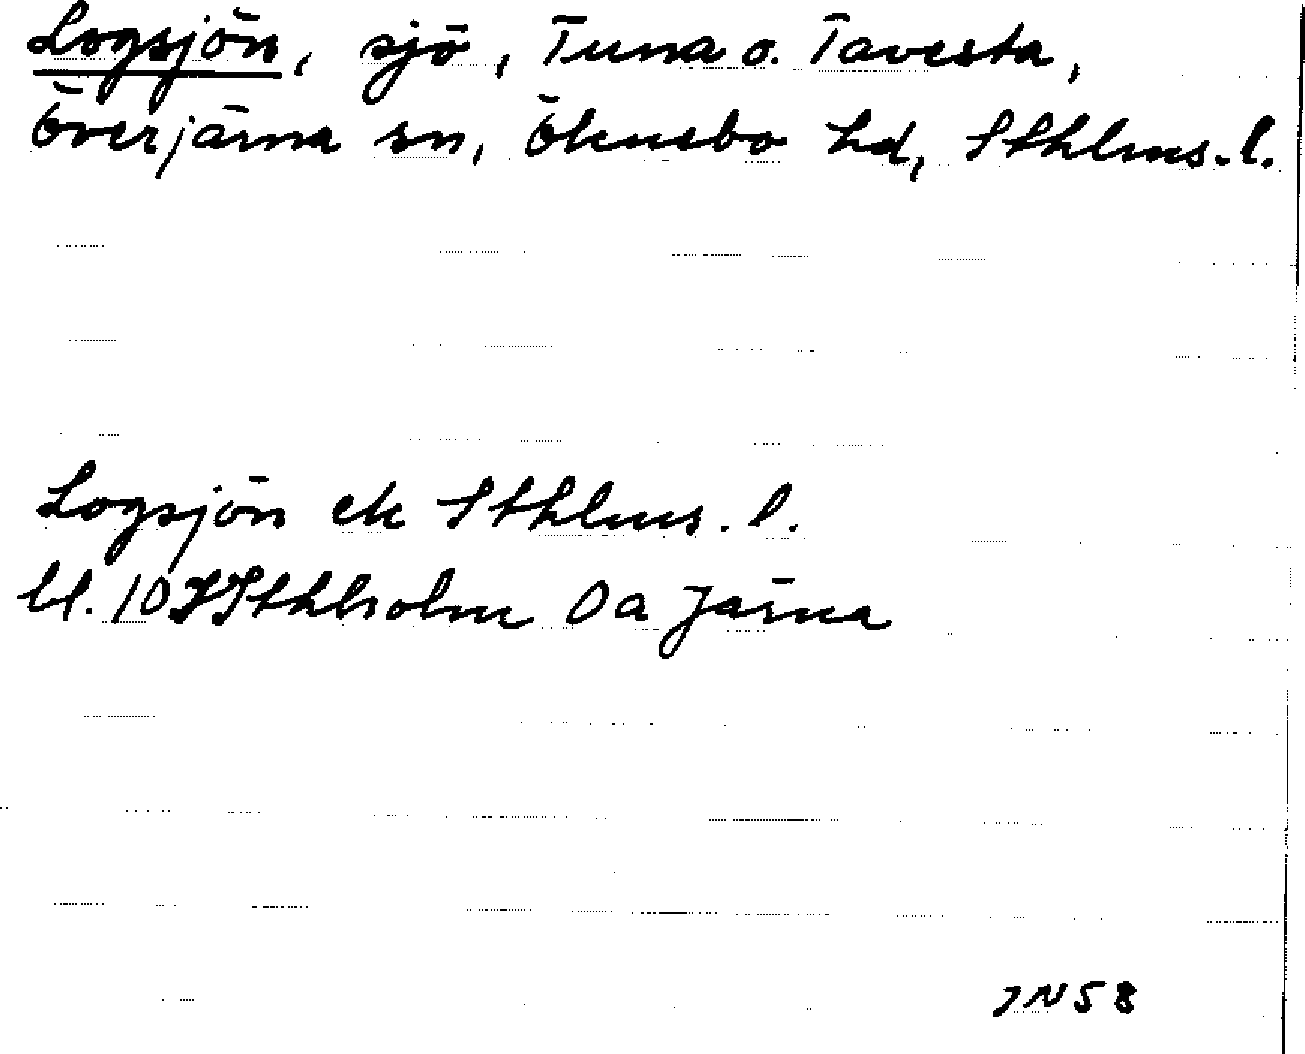 Logsjön, sjö, Tuna o. Tavesta,
Överjärna sn, Öknebo hd, Sthlms. l.
Logsjön ek Sthlms. l.
bl. 10 Stholm Oa Järna
JN58